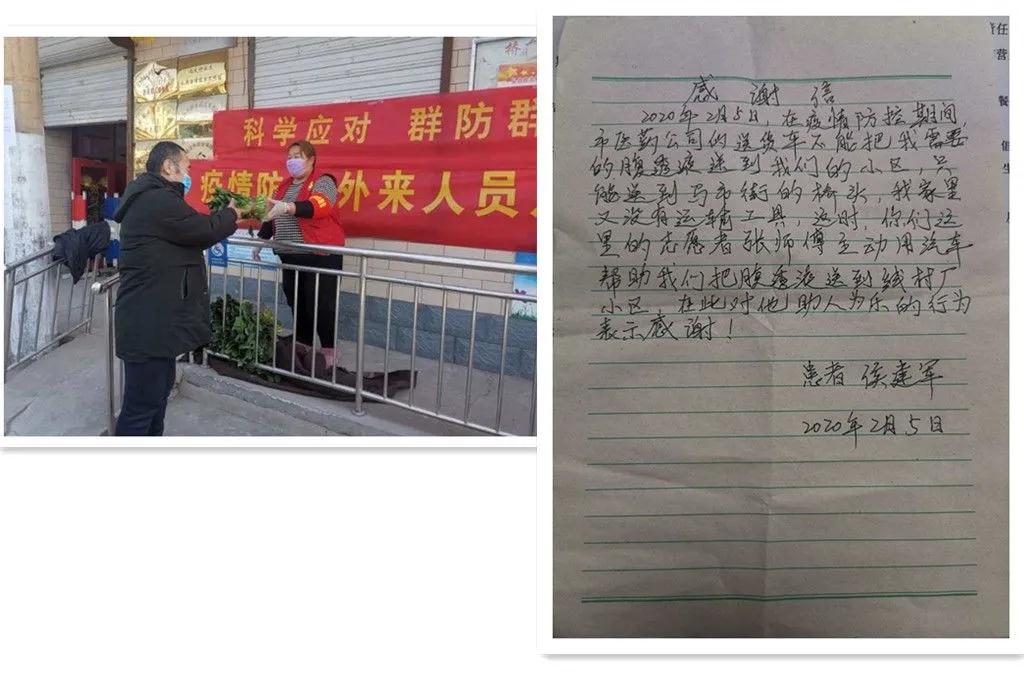 科学应对 群防群
疫情防 外来人员
感谢信
2020年2月5日,在疫情防控期间,
市医药公司的送货车不能把我需要
的腹透液送到我们的小区,只
能送到马市街的桥头,我家里
又没有运输工具,这时,你们这
里的志愿者张师傅主动用汽车
帮助我们把腹透液送到线材厂
小区 在此对他助人为乐的行为
表示感谢!
患者 侯建军
2020年2月5日
责任
营
餐